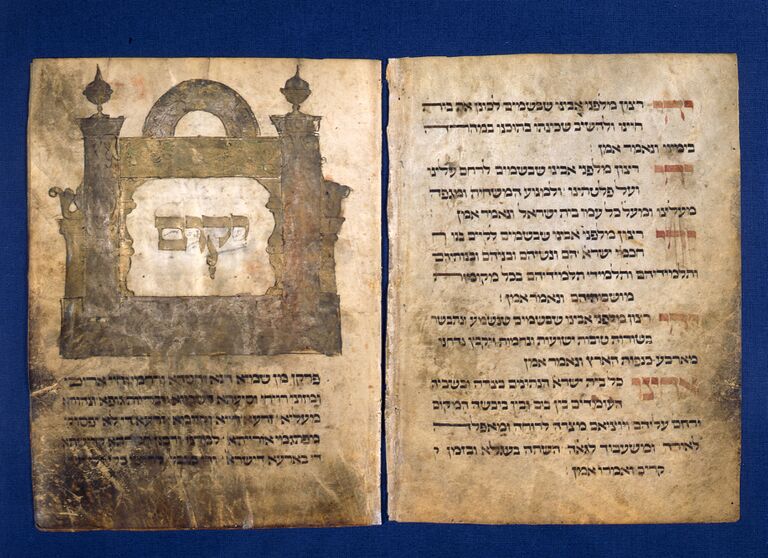 יהי רצון מלפני אבינו שבשמים לכונן את בית
חיינו ולהשיב שכינתו בתוכנו במהרה
בימינו ונאמר אמן
יהי רצון מלפני אבינו שבשמים לרחם עלינו
ועל פליטתינו ולמנוע המשחית ומגפה
מעלינו ומעל כל עמו בית ישראל ונאמר אמן
יהי רצון מלפני אבינו שבשמים לקיים בנו
חכמי ישראל הם ונשיהם ובניהם ובנותיהם
ותלמידיהם ותלמידי תלמידיהם בכל מקומות
מושבותיהם ונאמר אמן
יהי רצון מלפני אבינו שבשמים שנשמע ונתבשר
בשורות טובות ישועות ונחמות ויקבץ נדחינו
מארבע כנפות הארץ ונאמר אמן
אחינו כל בית ישראל הנתונים בצרה ובשביה
העומדים בין בים ובין ביבשה המקום
ירחם עליהם ויוציאם מצרה לרוחה ומאפלה
לאורה ומשעבוד לגאולה השתה בעגלא ובזמן
קריב ואמרו אמן
יקום
פרקן מן שמיא חנא וחסדא ורחמי וחיי אריכי
ומזוני רויחי וסיעתא דשמיא ובריות גופא ונהורא
מעליא זרעא חייא וקיימא זרעא די לא יפסוק
מפתגמי אורייתא למרנן ורבנן קדישתא
די בארעא דישראל